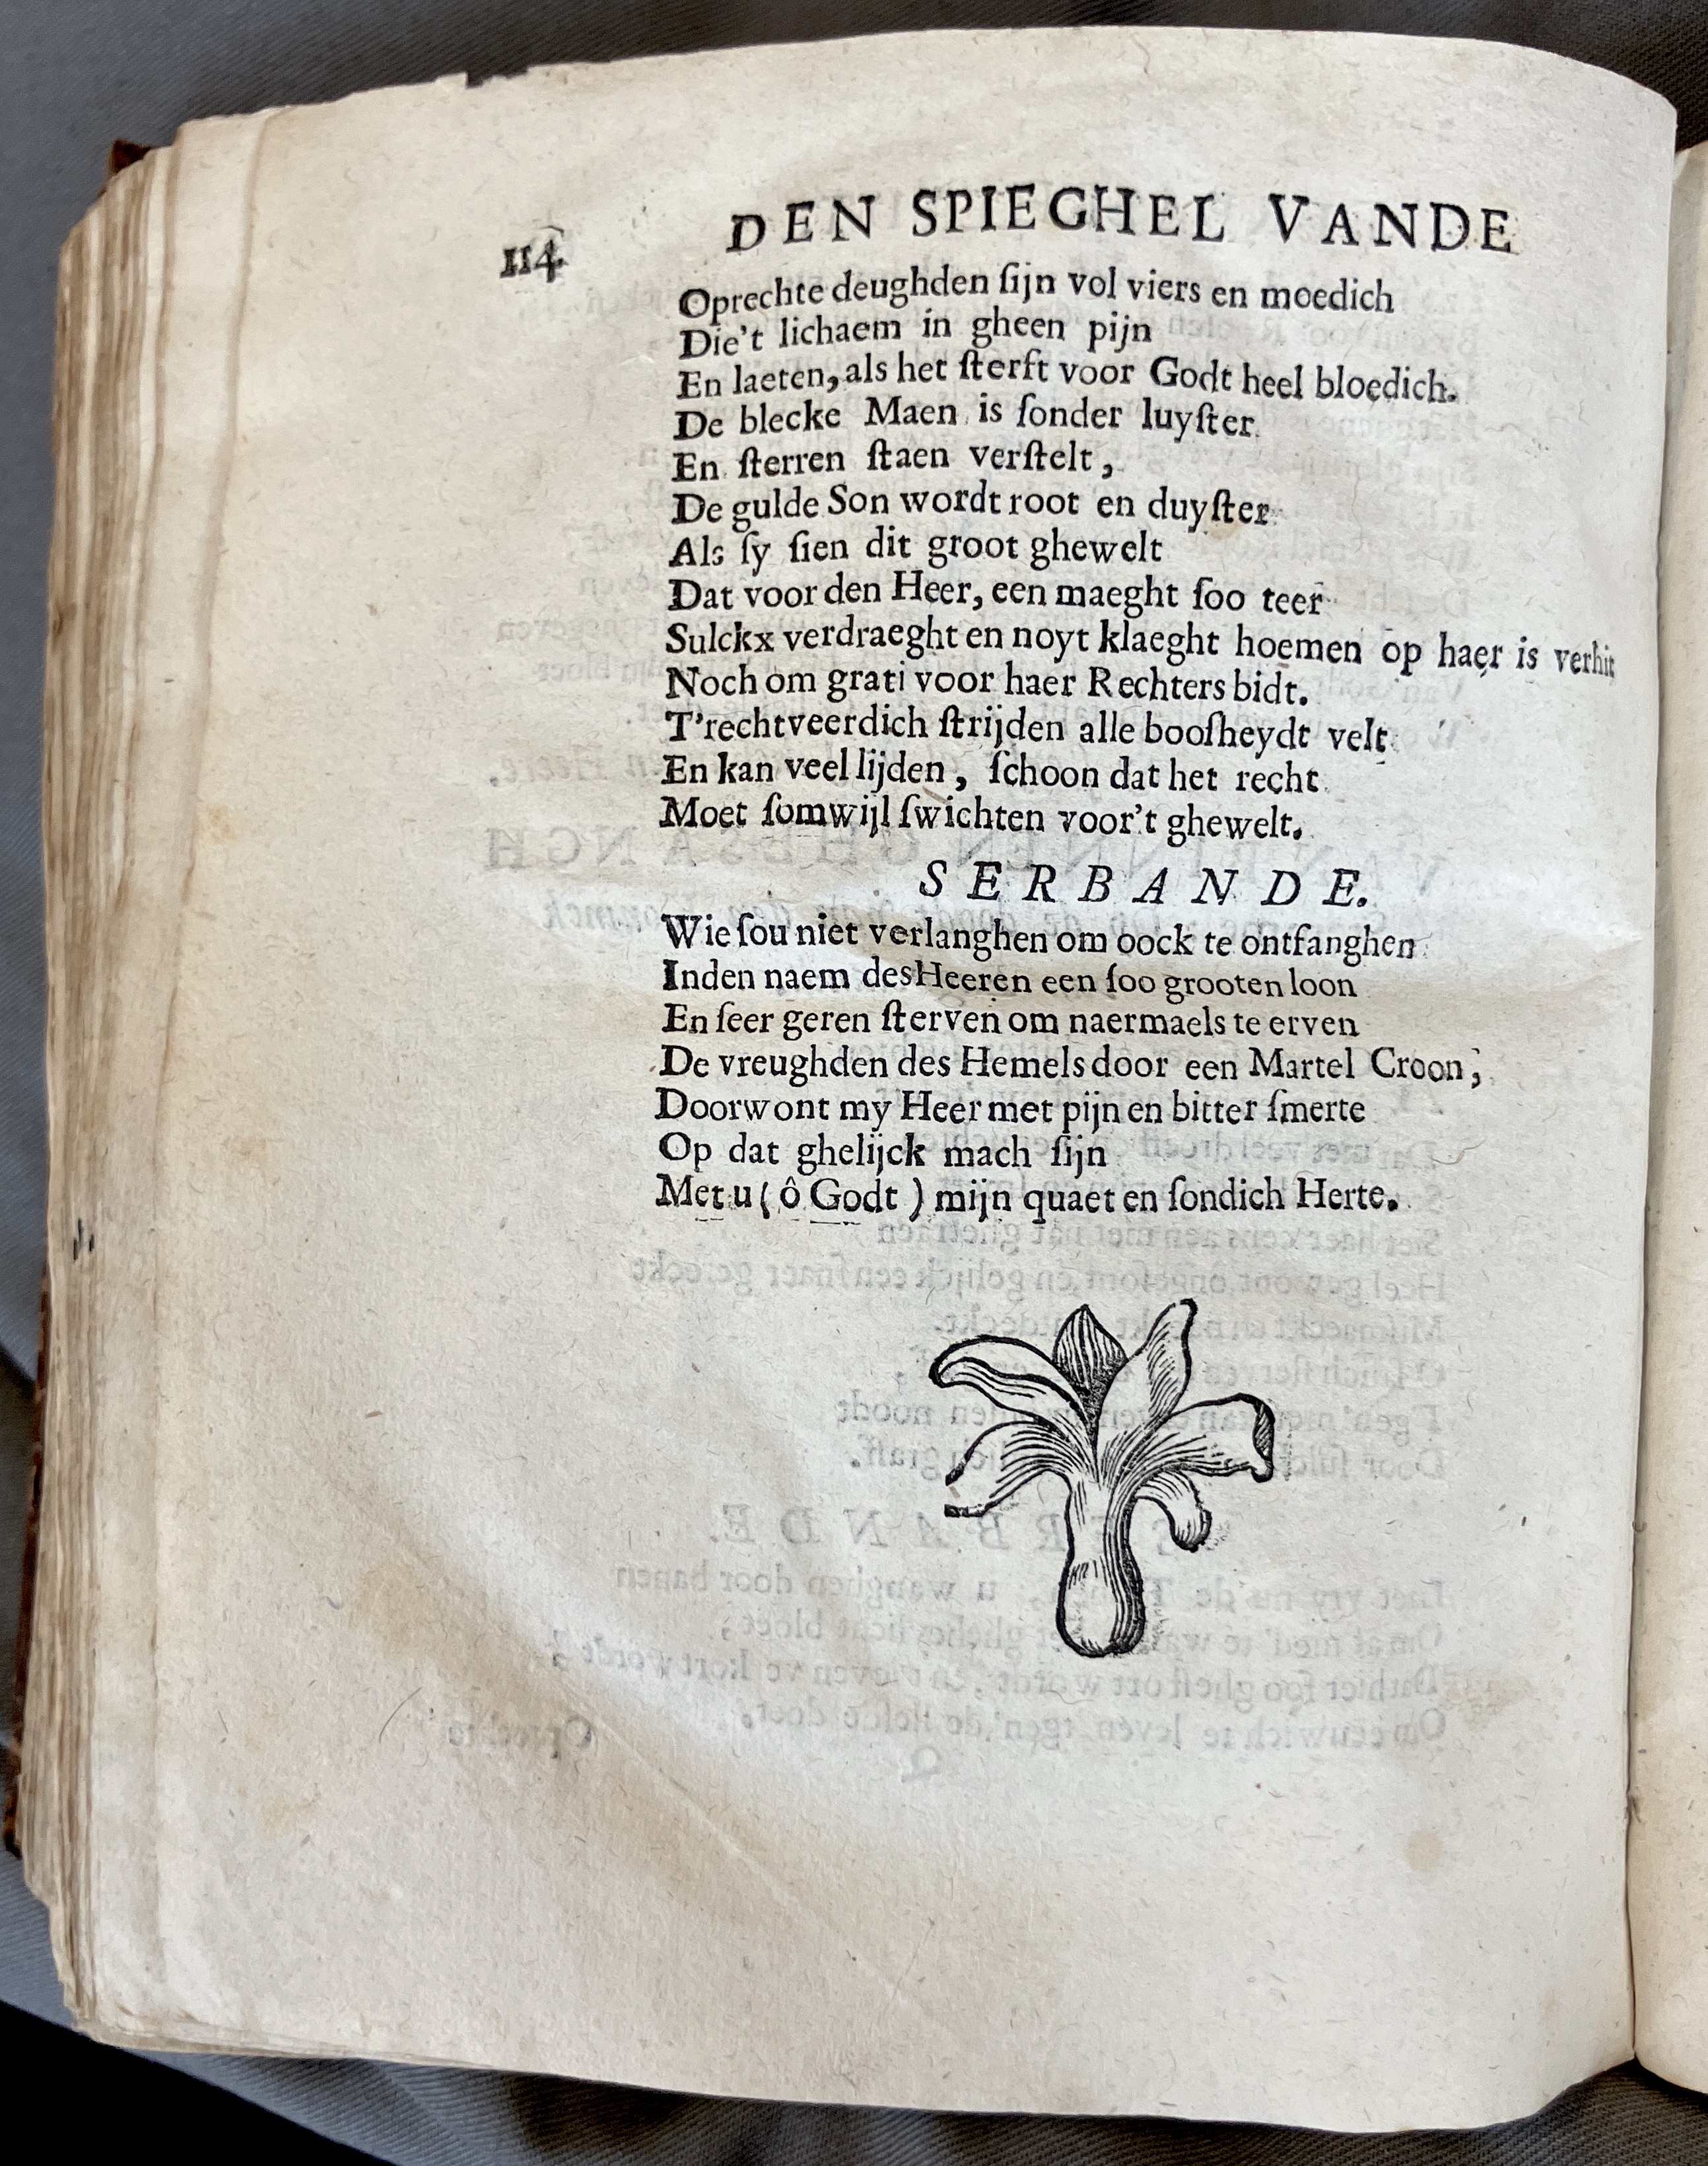 114
DEN SPIEGHEL VANDE
Oprechte deughden ſijn vol viers en moedich
Die't lichaem in gheen pijn
En laeten, als het ſterft voor Godt heel bloedich.
De blecke Maen is ſonder luyſter
En ſterren ſtaen verſtelt,
De gulde Son wordt root en duyſter
Als ſy ſien dit groot ghewelt
Dat voor den Heer, een maeght ſoo teer
Sulckx verdraeght en noyt klaeght hoemen op haer is verhit
Noch om grati voor haer Rechters bidt.
T'rechtveerdich ſtrijden alle booſheydt velt
En kan veel lijden, ſchoon dat het recht
Moet ſomwijl ſwichten voor't ghewelt.
SERBANDE.
Wie ſou niet verlanghen om oock te ontfanghen
Inden naem des Heeren een ſoo grooten loon
En ſeer geren ſterven om naermaels te erven
De vreughden des Hemels door een Martel Croon;
Doorwont my Heer met pijn en bitter ſmerte
Op dat ghelijck mach ſijn
Met u (ô Godt) mijn quaet en ſondich Herte.